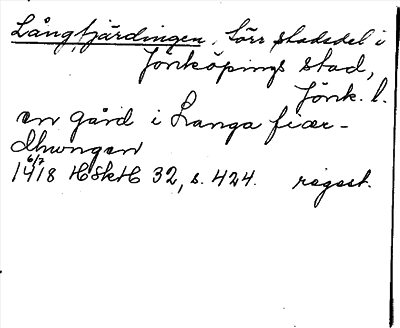 Långfjärdingen, förr stadsdel i
Jönköpings stad,
Jönk. l.
en gård i Langa fiær-
dhungen
6/7
1418 HSkH 32, s. 424. regest.